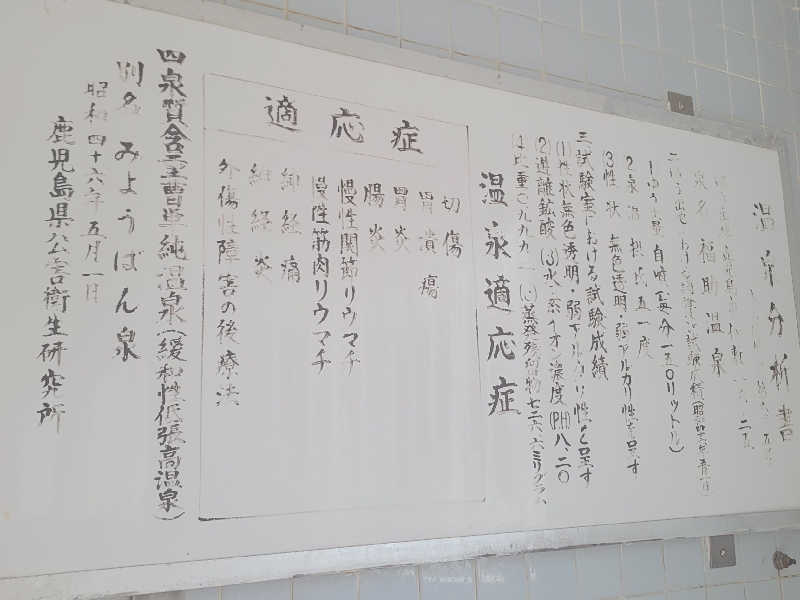 温泉分析書
泉名 福助温泉
ゆう出量 自噴(毎分一五〇リットル)
2 泉温 摂氏五一度
3 性状 無色透明弱アルカリ性を呈す
三試験室における試験成績
(1)性状無色透明・弱アルカリ性を呈す
(2)遊離鉱酸 (3)水素イオン濃度(PH)八、二〇
(4)比重〇、九九九 蒸発残留物七二六、六ミリグラム
温泉適応症
適応症
切傷
胃潰瘍
胃炎
腸炎
慢性関節リウマチ
慢性筋肉リウマチ
神経痛
神経炎
外傷性障害の後療法
四泉質含重曹単純温泉(緩和性低張高温泉)
別名みようばん泉
昭和四十六年五月一日
鹿児島県公害衛生研究所